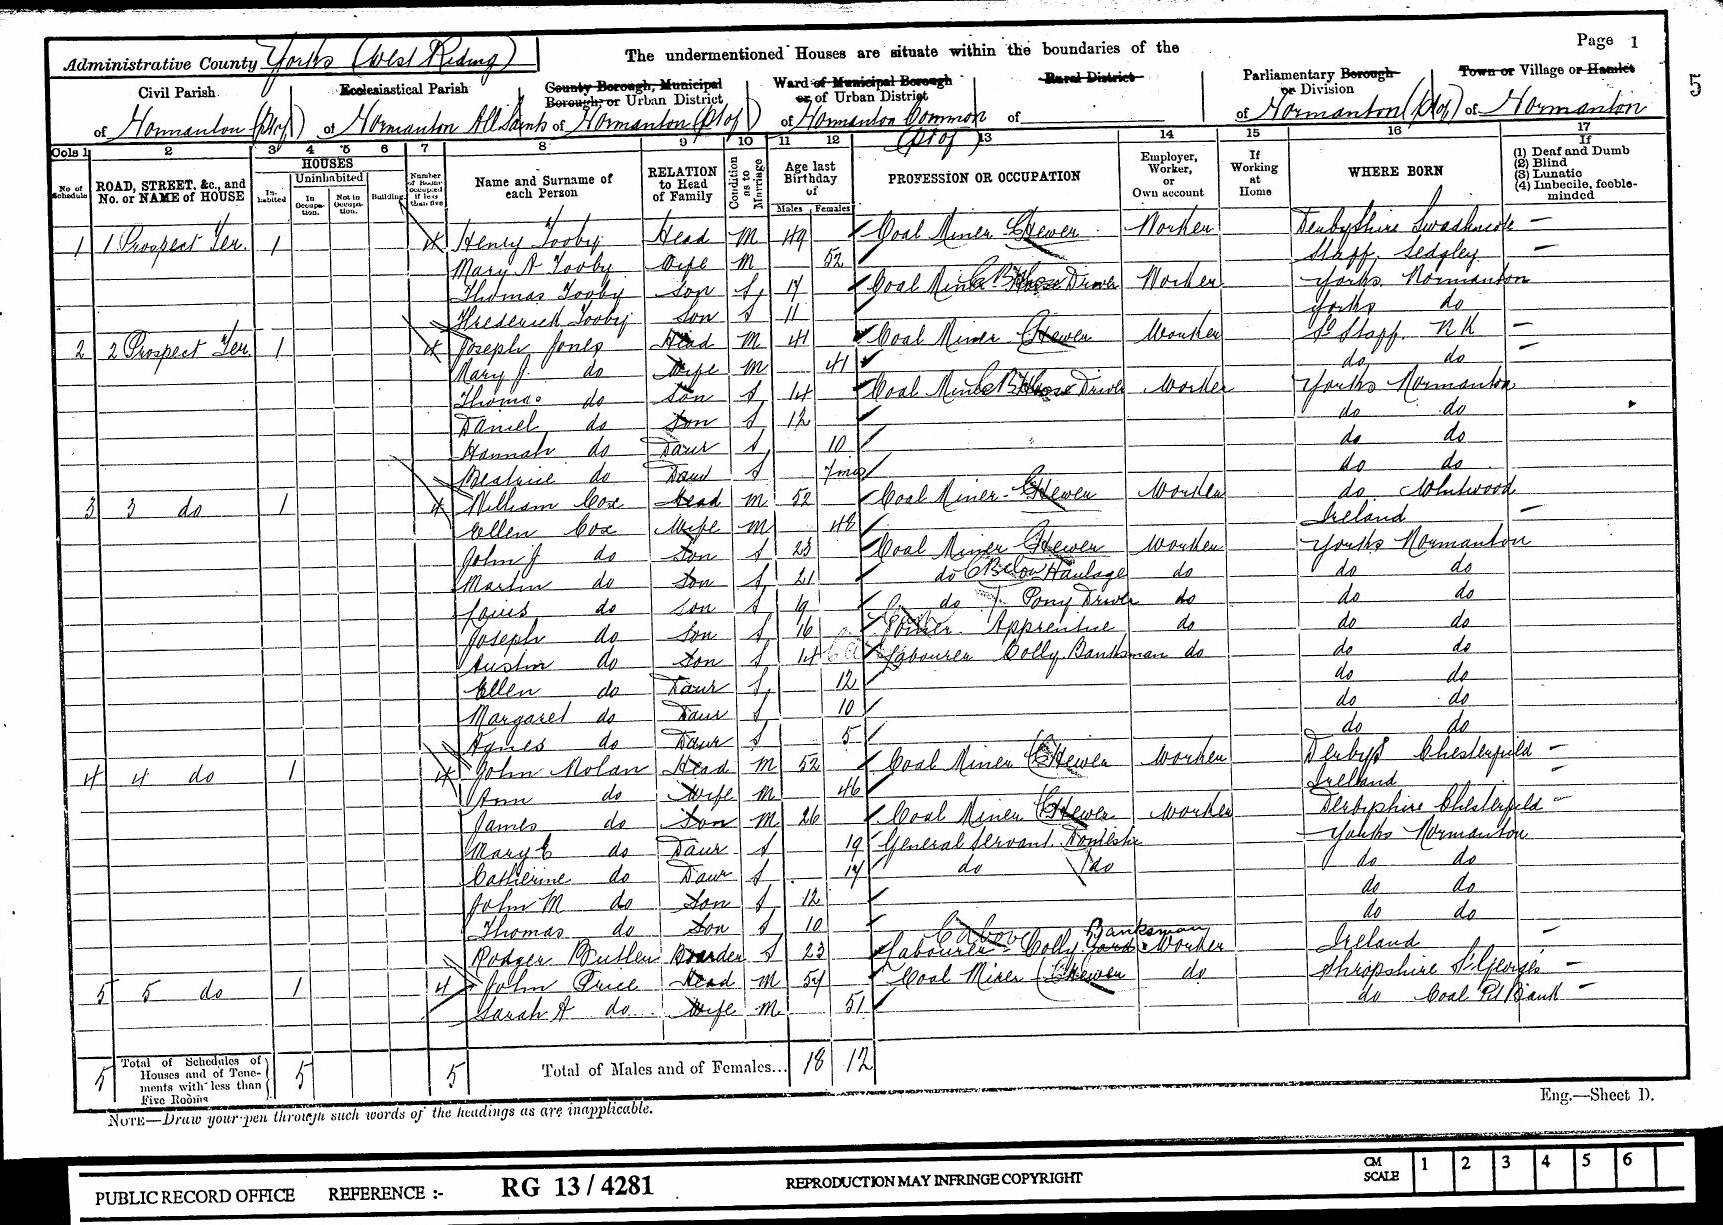 Page 1
Administrative County Yorks (West Riding)
The undermentioned Houses are situate within the boundaries of the
5
Civil Parish of Normanton (pt of)
Ecclesiastical Parish of Normanton All Saints
County Borough, Municipal Borough, or Urban District of Normanton (pt of)
Ward of Municipal Borough or of Urban District of Normanton Common (pt of)
Rural District of
Parliamentary Borough or Division of Normanton (pt of)
Town or Village or Hamlet of Normanton
Cols 1 2 3 4 5 6 7 8 9 10 11 12 13 14 15 16 17
No. of Schedule
ROAD, STREET, &c., and No. or NAME of HOUSE
HOUSES
Inhabited
Uninhabited
In Occupation.
Not in Occupation.
Building.
Number of Rooms occupied if less than five
Name and Surname of each Person
RELATION to Head of Family
Condition as to Marriage
Age last Birthday of
Males Females
PROFESSION OR OCCUPATION
Employer, Worker, or Own account
If Working at Home
WHERE BORN
If
(1) Deaf and Dumb
(2) Blind
(3) Lunatic
(4) Imbecile, feeble-minded
1 1 Prospect Ter. 1 4 Henry Tooby Head M 49 Coal Miner Hewer Worker Derbyshire Swadlincote
Mary A Tooby Wife M 52 Staff. Sedgley
Thomas Tooby Son S 17 Coal Mine Horse Driver Worker Yorks Normanton
Frederick Tooby Son S 11 Yorks do
2 2 Prospect Ter. 1 4 Joseph Jones Head M 41 Coal Miner Hewer Worker S. Staff. N K
Mary J. do Wife M 41 do do
Thomas do Son S 14 Coal Mine Horse Driver Worker Yorks Normanton
Daniel do Son S 12 do do
Hannah do Daur S 10 do do
Beatrice do Daur S 7mos do do
3 3 do 1 4 William Cox Head M 52 Coal Miner - Hewer Worker do Whitwood
Ellen Cox Wife M 48 Ireland
John J do Son S 23 Coal Miner Hewer Worker Yorks Normanton
Martin do Son S 21 do Below Haulage do do do
Louis do Son S 19 do Pony Driver do do do
Joseph do Son S 16 Joiner Apprentice do do do
Austin do Son S 14 Labourer Colly. Banksman do do do
Ellen do Daur S 12 do do
Margaret do Daur S 10 do do
Agnes do Daur S 5 do do
4 4 do 1 4 John Nolan Head M 52 Coal Miner Hewer Worker Derbys Chesterfield
Ann do Wife M 46 Ireland
James do Son M 26 Coal Miner Hewer Worker Derbyshire Chesterfield
Mary E do Daur S 19 General Servant Domestic Yorks Normanton
Catherine do Daur S 17 do do do do
John M do Son S 12 do do
Thomas do Son S 10 do do
Rodger Butler Boarder S 23 Labourer Colly Yard Banksman Worker Ireland
5 5 do 1 4 John Price Head M 54 Coal Miner Hewer do Shropshire St Georges
Sarah A do Wife M 51 do Coal Pit Bank
5 Total of Schedules of Houses and of Tenements with less than Five Rooms 5 5 Total of Males and of Females... 18 12
NOTE—Draw your pen through such words of the headings as are inapplicable.
Eng.—Sheet D.
PUBLIC RECORD OFFICE REFERENCE :- RG 13 / 4281 REPRODUCTION MAY INFRINGE COPYRIGHT CM SCALE 1 2 3 4 5 6